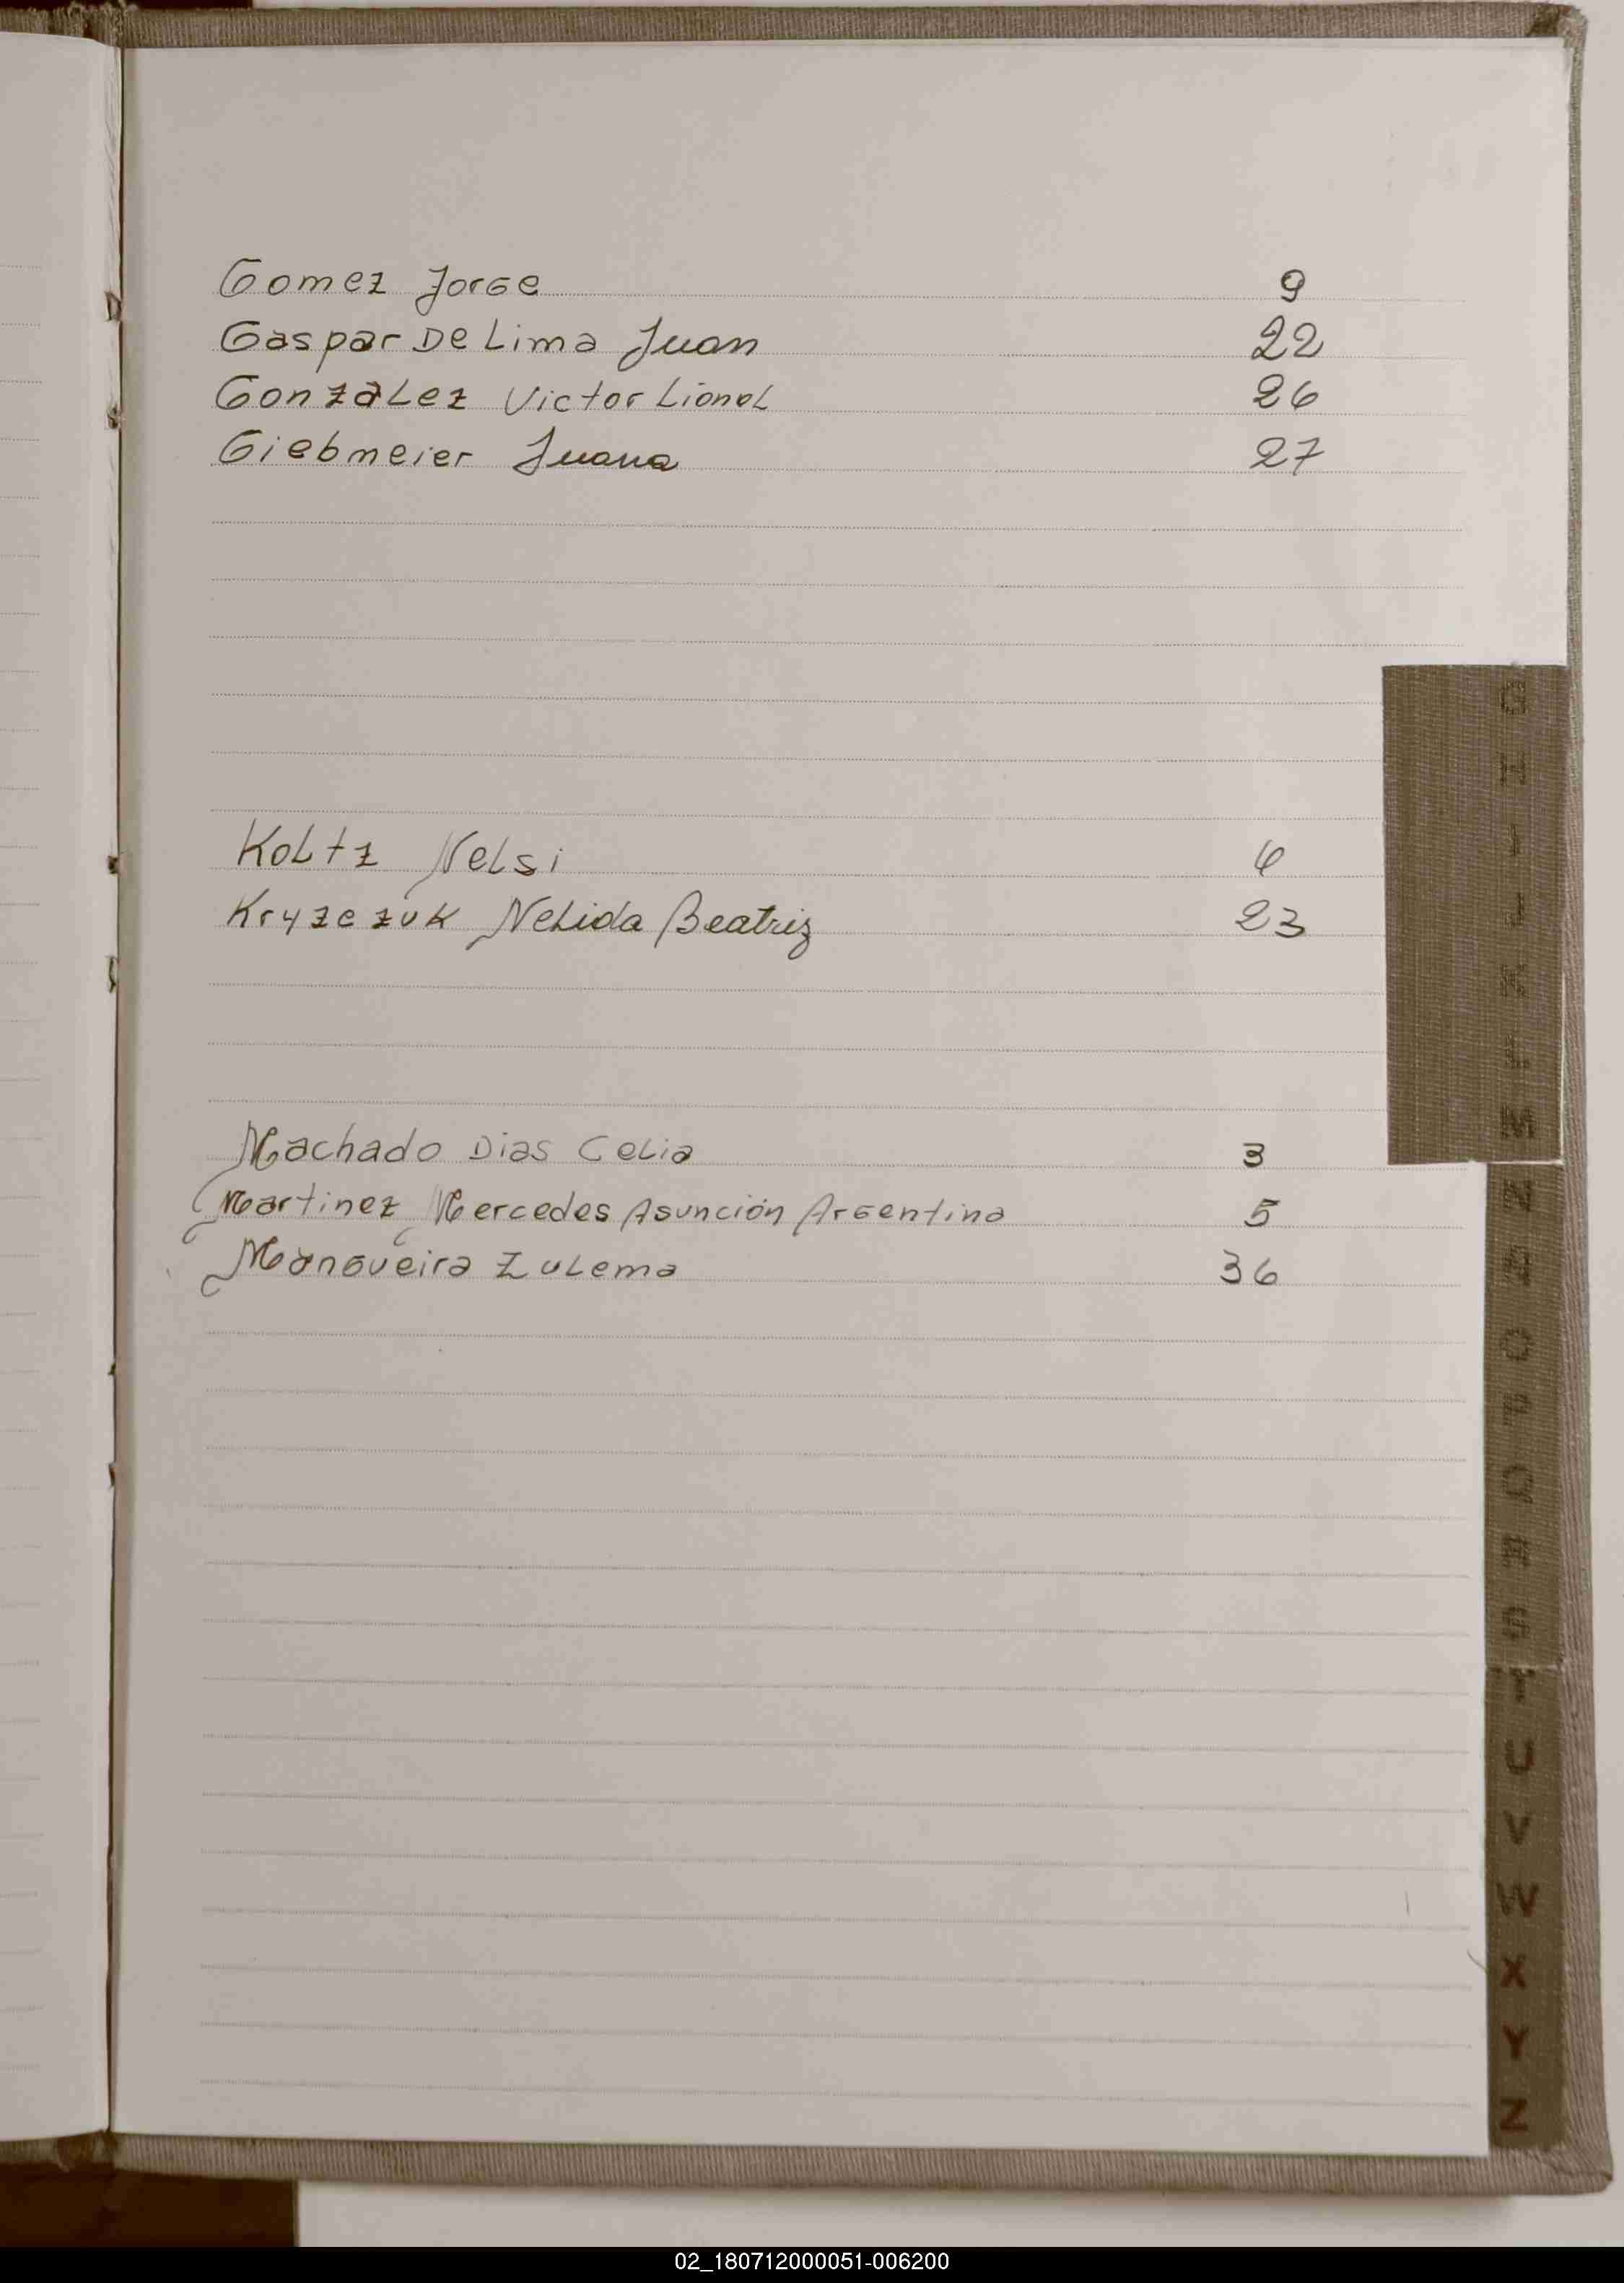 Gomez Jorge 9
Gaspar De Lima Juan 22
González Victor Lionel 26
Giebmeier Juana 27
Koltz Nelsi 6
Kryzezuk Nelida Beatriz 23
Machado Dias Celia 3
Martinez Mercedes Asunción Argentina 5
Mangueira Zulema 36
G
H
I
J
K
L
M
N
Ñ
O
P
Q
R
S
T
U
V
W
X
Y
Z
02_180712000051-006200